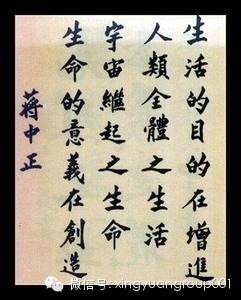 生活的目的在增進
人類全體之生活
生命的意義在創造
宇宙繼起之生命
蔣中正
微信号: xingyuangroup001